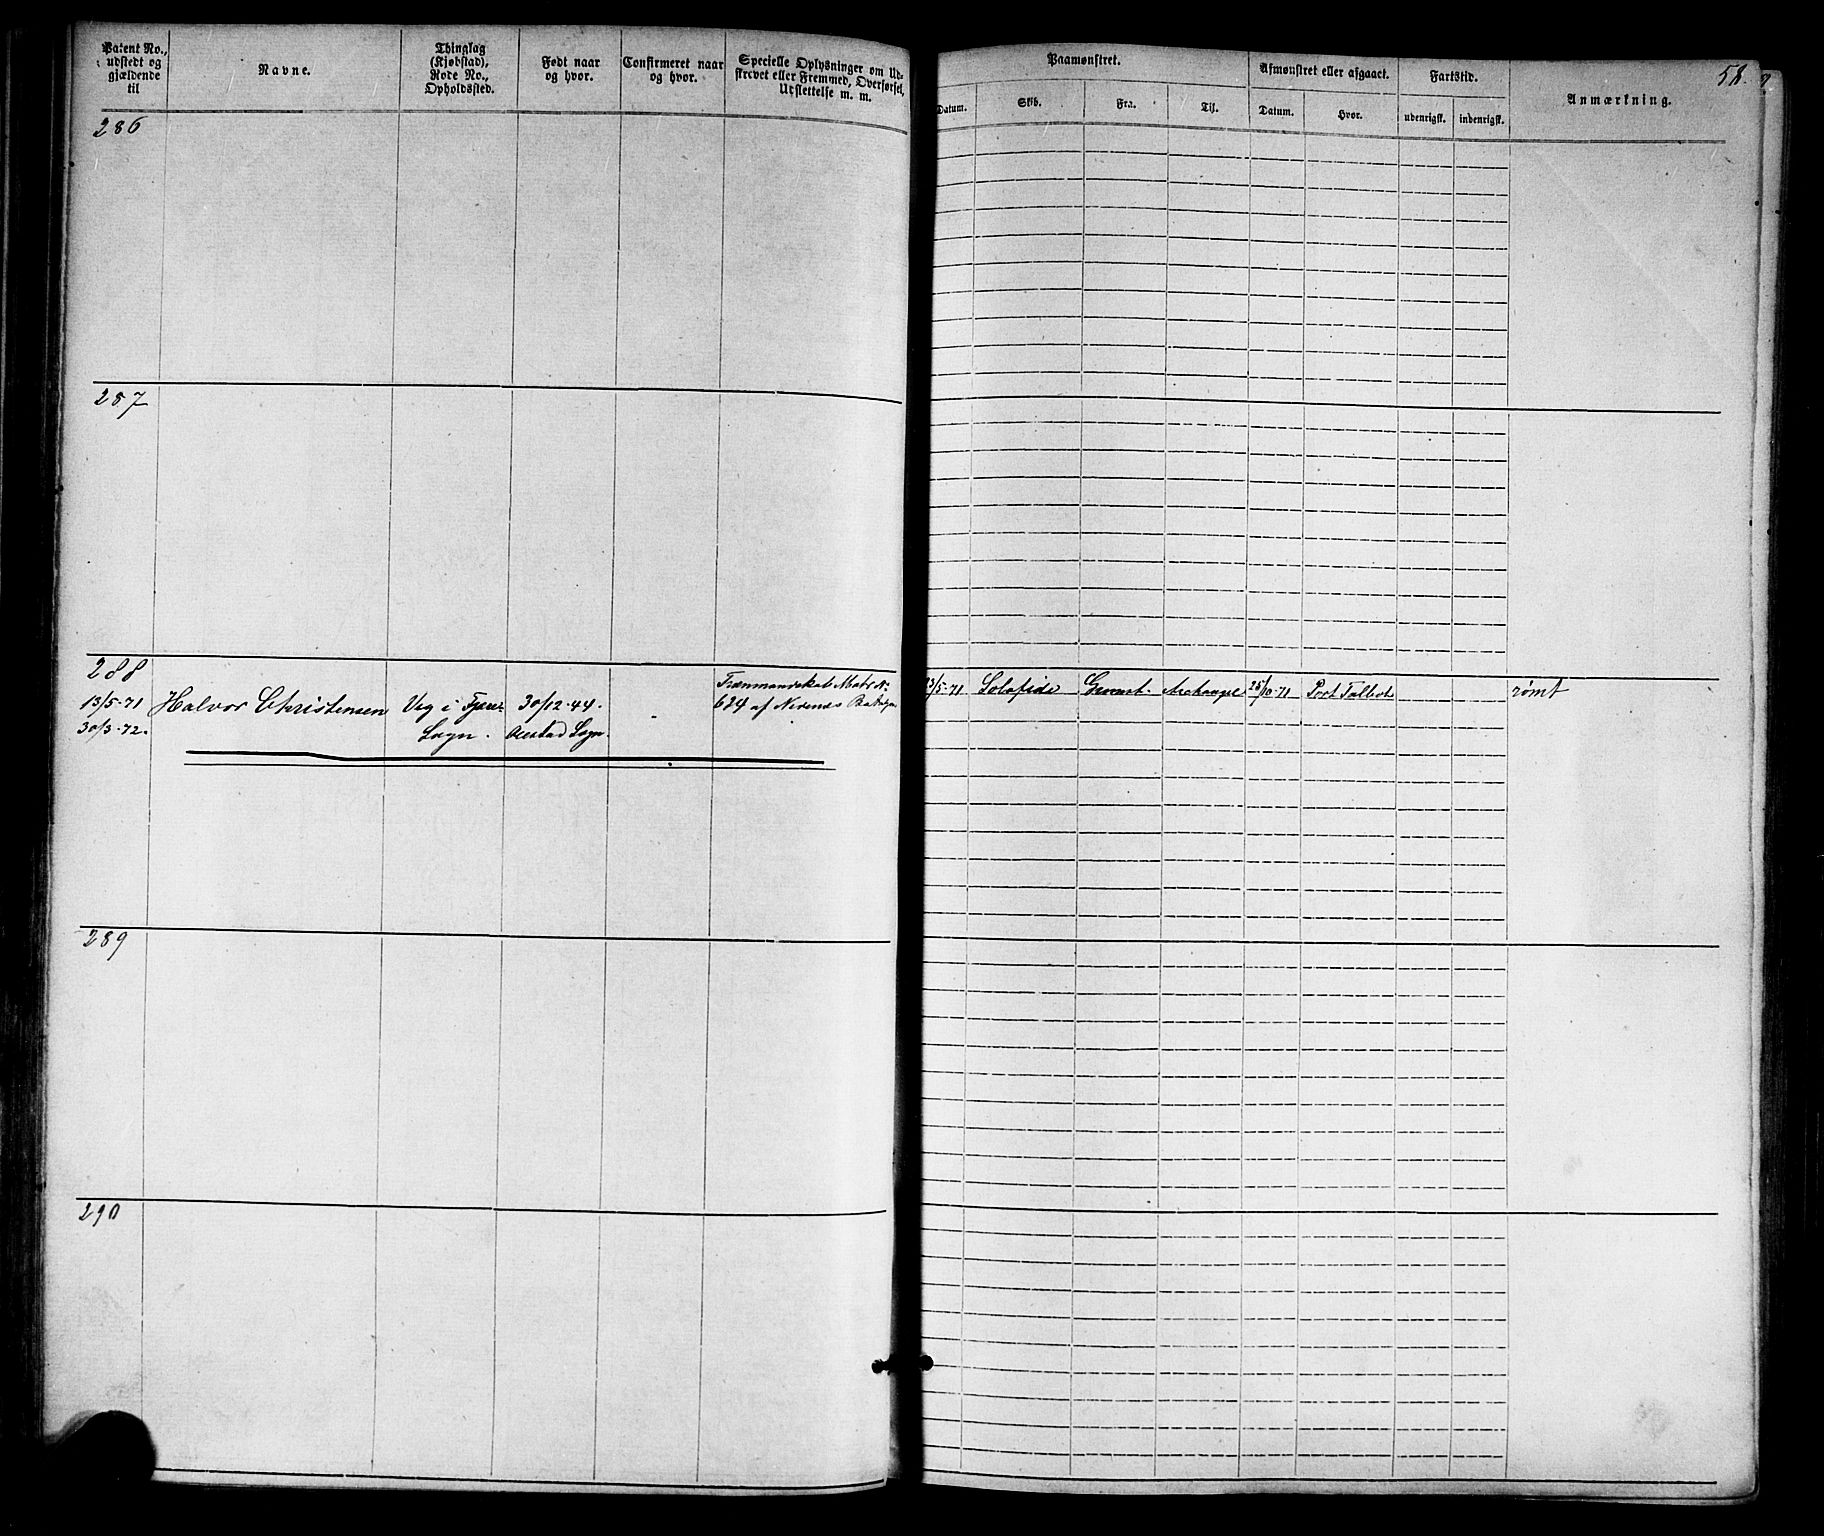 Patent No., udstedt og gjældende til
Navne.
Thinglag (Kjøbstad), Rode No., Opholdssted.
Født naar og hvor.
Confirmeret naar og hvor.
Specielle Oplysninger om Udskrevet eller Fremmed, Overførsel, Udslettelse m. m.
Paamønstret.
Afmønstret eller afgaaet.
Fartstid.
Anmærkning.
58.
Datum.
Skib.
Fra.
Til.
Datum.
Hvor.
udenrigsk.
indenrigsk.
286
287
288
13/5-71
30/3-72.
Halvor Christensen
Veg i
Sogn.
30/12-44.
Sogn
624 af Nedenæs
13/5-71
Solafide
Archangel
25/10-71
Port Talbot
rømt
289
290